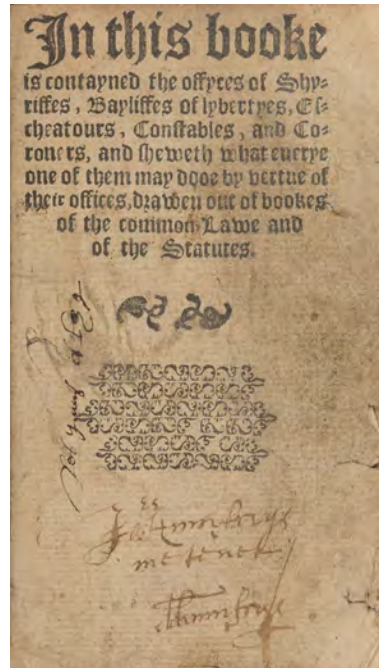 In this booke
is contayned the offyces of Shy=
riffes, Bayliffes of lybertyes, Es=
cheatours, Constables, and Co=
roners, and sheweth what euerye
one of them may dooe by vertue of
their offices, drawen out of bookes
of the common Lawe and
of the Statutes.
me tenet